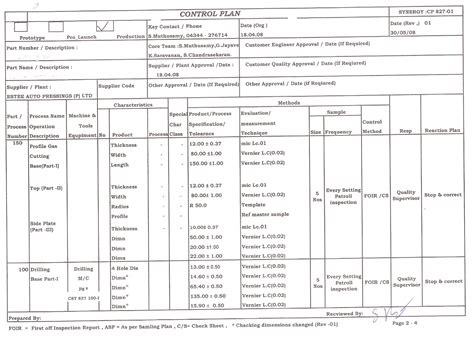 CONTROL PLAN
SYNERGY -CP 827-01
Prototype Pre_Launch Production
Key Contact / Phone
S.Muthusamy, 04344 - 276714
Date (Org )
18.04.08
Date (Rev ,) 01
30/05/08
Part Number / Description :
Core Team :S.Muthusamy,G.Jayava
K.Saravanan, S.Chandrasekaran.
Customer Engineer Approval / Date (If Required)
Part Name / Description :
Supplier / Plant Approval /Date :
18.04.08
Customer Quality Approval / Date (If Required)
Supplier / Plant :
ESTEE AUTO PRESSINGS (P) LTD
Supplier Code
Other Approval / Date (If Required)
Other Approval / Date (If Required)
Characteristics
Methods
Part / Process Number
Process Name Operation Description
Machine & Tools Equipment
No Product Process
Special Char Class
Product/Process Specification/ Tolerance
Evaluation/ measurement Technique
Sample
Size Frequency
Control Method
Resp
Reaction Plan
150 Profile Gas Thickness - - 12.00 ± 0.37 mic Lc.01
Cutting Width - - 80.00 ±1.00 Vernier L.C(0.02)
Base(Part-I) Length - - 150.00 ±1.00 Vernier L.C(0.02)
Top (Part -II) Thickness - - 12.00 ± 0.37 mic Lc.01
Width 80.00± 1.00 Vernier L.C(0.02)
Radius R 50.0 Template
Profile Ref master sample
Side Plate Thickness 10.00± 0.37 mic Lc.01
(Part -III) Dimn 50.00 ± 1.00 Vernier L.C(0.02)
Dimn 20.00 ±1.00 Vernier L.C(0.02)
Dimn 22.00 ± 1.00 Vernier L.C(0.02)
5 Nos Every Setting Patroll inspection FOIR /CS Quality Supervisor Stop & correct
100 Drilling Drilling 4 Hole Dia 13.00 ± 0.50 Vernier L.C(0.02)
Base Part-I M/C Dimn* 14.60 ± 0.50 Vernier L.C(0.02)
Jig # Dimn* 65.40 ± 0.50 Vernier L.C(0.02)
Dimn* 135.00 ± 0.50 Vernier L.C(0.02)
Dimn* 15.90 ± 0.50 Vernier L.C(0.02)
5 Nos Every Setting Patroll inspection FOIR /CS Quality Supervisor Stop & correct
Prepared By:
Recviewed By:
FOIR = First off Inspection Report , ASP = As per Samling Plan , C/S= Check Sheet , * Chacking dimensions changed (Rev -01)
Page 2 - 4